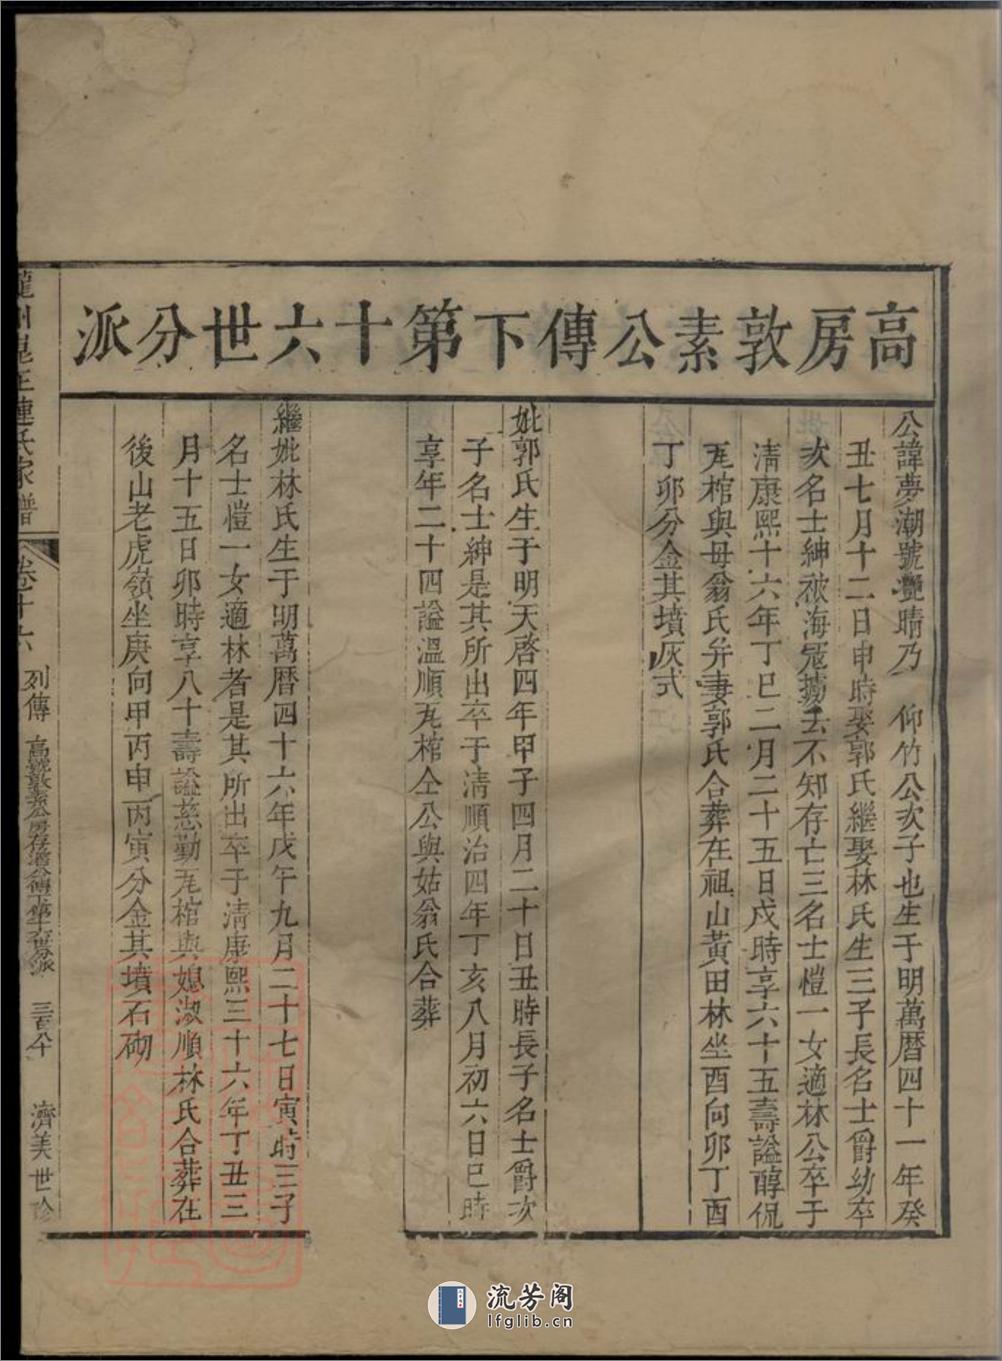 高房敦素公傳下第十六世分派
公諱夢潮號灔晴乃 仰竹公次子也生于明萬曆四十一年癸
丑七月十二日申時娶郭氏繼娶林氏生三子長名士爵幼卒
次名士紳被海冦擄去不知存亡三名士愷一女適林公卒于
清康熙十六年丁巳二月二十五日戌時享六十五壽謚醇侃
瓦棺與母翁氏弁妻郭氏合葬在祖山黃田林坐酉向卯丁酉
丁卯分金其墳灰式
妣郭氏生于明天啓四年甲子四月二十日丑時長子名士爵次
子名士紳是其所出卒于清順治四年丁亥八月初六日巳時
享年二十四謚溫順瓦棺仝公與姑翁氏合葬
繼妣林氏生于明萬曆四十六年戊午九月二十七日寅時三子
名士愷一女適林者是其所出卒于清康熙三十六年丁丑三
月十五日卯時享八十壽謚慈勤瓦棺與媳淑順林氏合葬在
後山老虎嶺坐庚向甲丙申丙寅分金其墳石砌
連氏家譜 卷十六 列傳 三百八十 濟美世珍
流芳阁
lfglib.cn